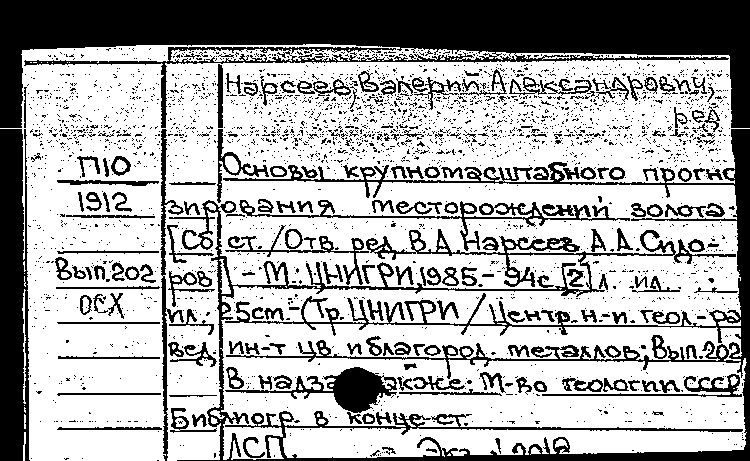 Нарсеев, Валерий Александрович,
ред
П10 Основы крупномасштабного прогно
1912 зирования месторождений золота:
[Сб ст. / Отв. ред. В.А. Нарсеев, А.А. Сидо-
Вып.202 ров] - М.: ЦНИГРИ, 1985. - 94с. [2] л. ил.
ОСХ ил.; 25см - (Тр. ЦНИГРИ / Центр. н.-и. геол.-ра
вед. ин-т цв. и благород. металлов; Вып.202
В надза акже: М-во геологии СССР
Библиогр. в конце ст.
ДСП. Экз.